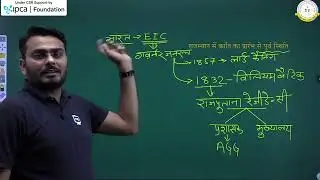 Under CSR Support by
ipca | Foundation
भारत → EIC
राजस्थान में क्रांति का प्रारंभ से पूर्व स्थिति
गवर्नर जनरल
→ 1857 → लार्ड कैनिंग
→ 1832 - विलियम बैंटिक
राजपूताना रेजीडेन्सी
प्रशासक मुख्यालय
AGG